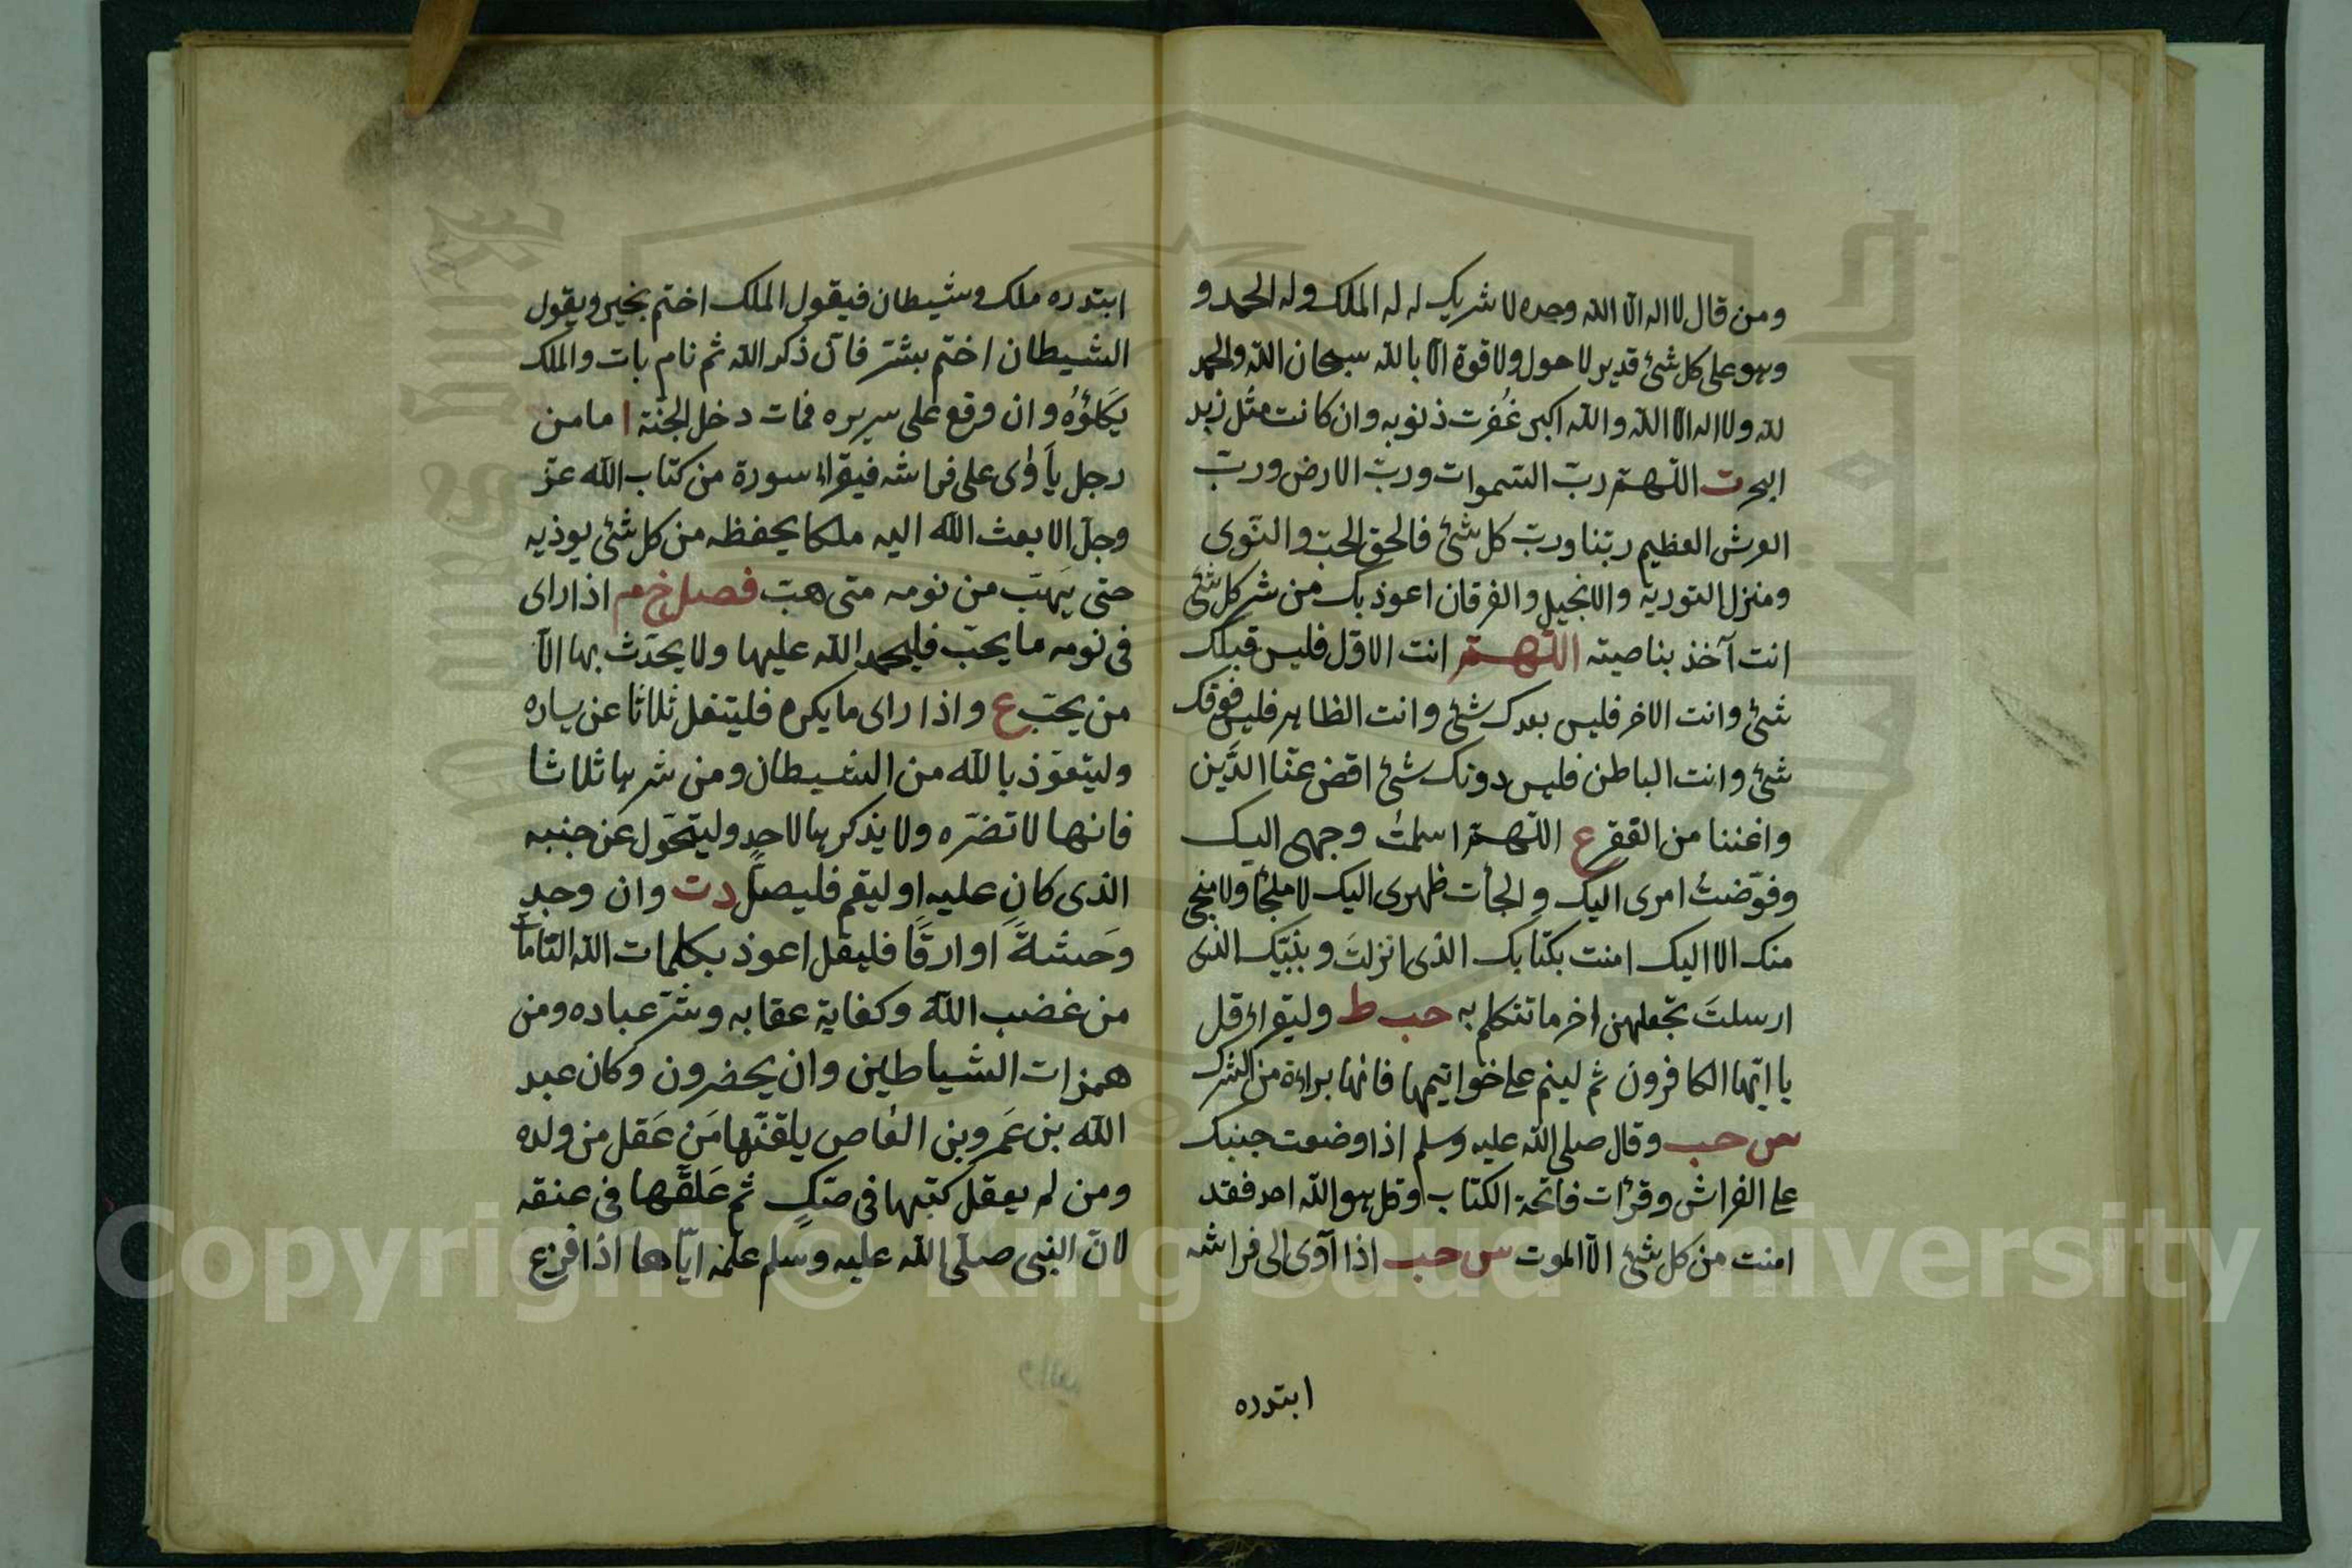 ومن قال لا اله الا الله وحده لا شريك له له الملك وله الحمد و
وهو على كل شئ قدير لا حول ولا قوة الا بالله سبحان الله والحمد
لله ولا اله الا الله والله اكبر غُفرت ذنوبه وان كانت مثل زبد
البحر ت اللّهمّ ربّ السّموات وربّ الارض وربّ
العرش العظيم ربّنا وربّ كل شئ فالحق الحبّ والنّوى
ومنزل التورية والانجيل والفرقان اعوذ بك من شر كل شئ
انت آخذ بناصيته اللّهمّ انت الاوّل فليس قبلك
شئ وانت الاخر فليس بعدك شئ وانت الظاهر فليس فوقك
شئ وانت الباطن فليس دونك شئ اقض عنّا الدَّين
واغننا من الققر ع اللّهمّ اسلمتُ وجهى اليك
وفوّضتُ امرى اليك والجأت ظهرى اليك لا ملجأ ولا منجى
منك الا اليك امنت بكتابك الذى انزلتَ وبنبيّك الذى
ارسلتَ تجعلهن اخر ما تتكلم به حب ط وليقراء قل
يا ايّها الكافرون ثم لينم على خواتيمها فانها براءة من الشرك
مص حب وقال صلى الله عليه وسلم اذا وضعت جنبك
على الفراش وقرأت فاتحة الكتاب وقل هو الله احد فقد
امنت من كل شئ الّا الموت س حب اذا آوى الى فراشه
ابتدره
ابتدره ملك وشيطان فيقول الملك اختم بخير ويقول
الشيطان اختم بشرّ فان ذكر الله ثم نام بات والملك
يَكلَؤُه وان وقع على سريره فمات دخل الجنّة ا ما من
رجل يأوى على فراشه فيقراء سورة من كتاب الله عزّ
وجلّ الا بعث الله اليه ملكا يحفظه من كل شئ يوذيه
حتى يَهبّ من نومه متى هبّ فصل خ م اذا راى
فى نومه ما يحبّ فليحمد الله عليها ولا يحدّث بها الّا
من يحبّ ع واذا راى ما يكره فليتفل ثلاثا عن يساره
وليتعوّذ بالله من الشيطان ومن شرها ثلاثا
فانها لا تضرّه ولا يذكرها لاحدٍ وليتحّول عن جنبه
الذى كان عليه او ليقم فليصلّ د ت وان وجد
وَحشةً او ارقًا فليقل اعوذ بكلمات الله التامات
من غضب الله وكفاية عقابه وشرّ عباده ومن
همزات الشياطين وان يحضرون وكان عبد
الله بن عَمرو بن العاص يلقّنها مَن عَقل من ولده
ومن لم يعقل كتبها فى صكٍ ثم عَلقّها فى عنقه
لانّ النبى صلّى الله عليه وسلم علّمه ايّاها اذا فزع
Copyright © King Saud University